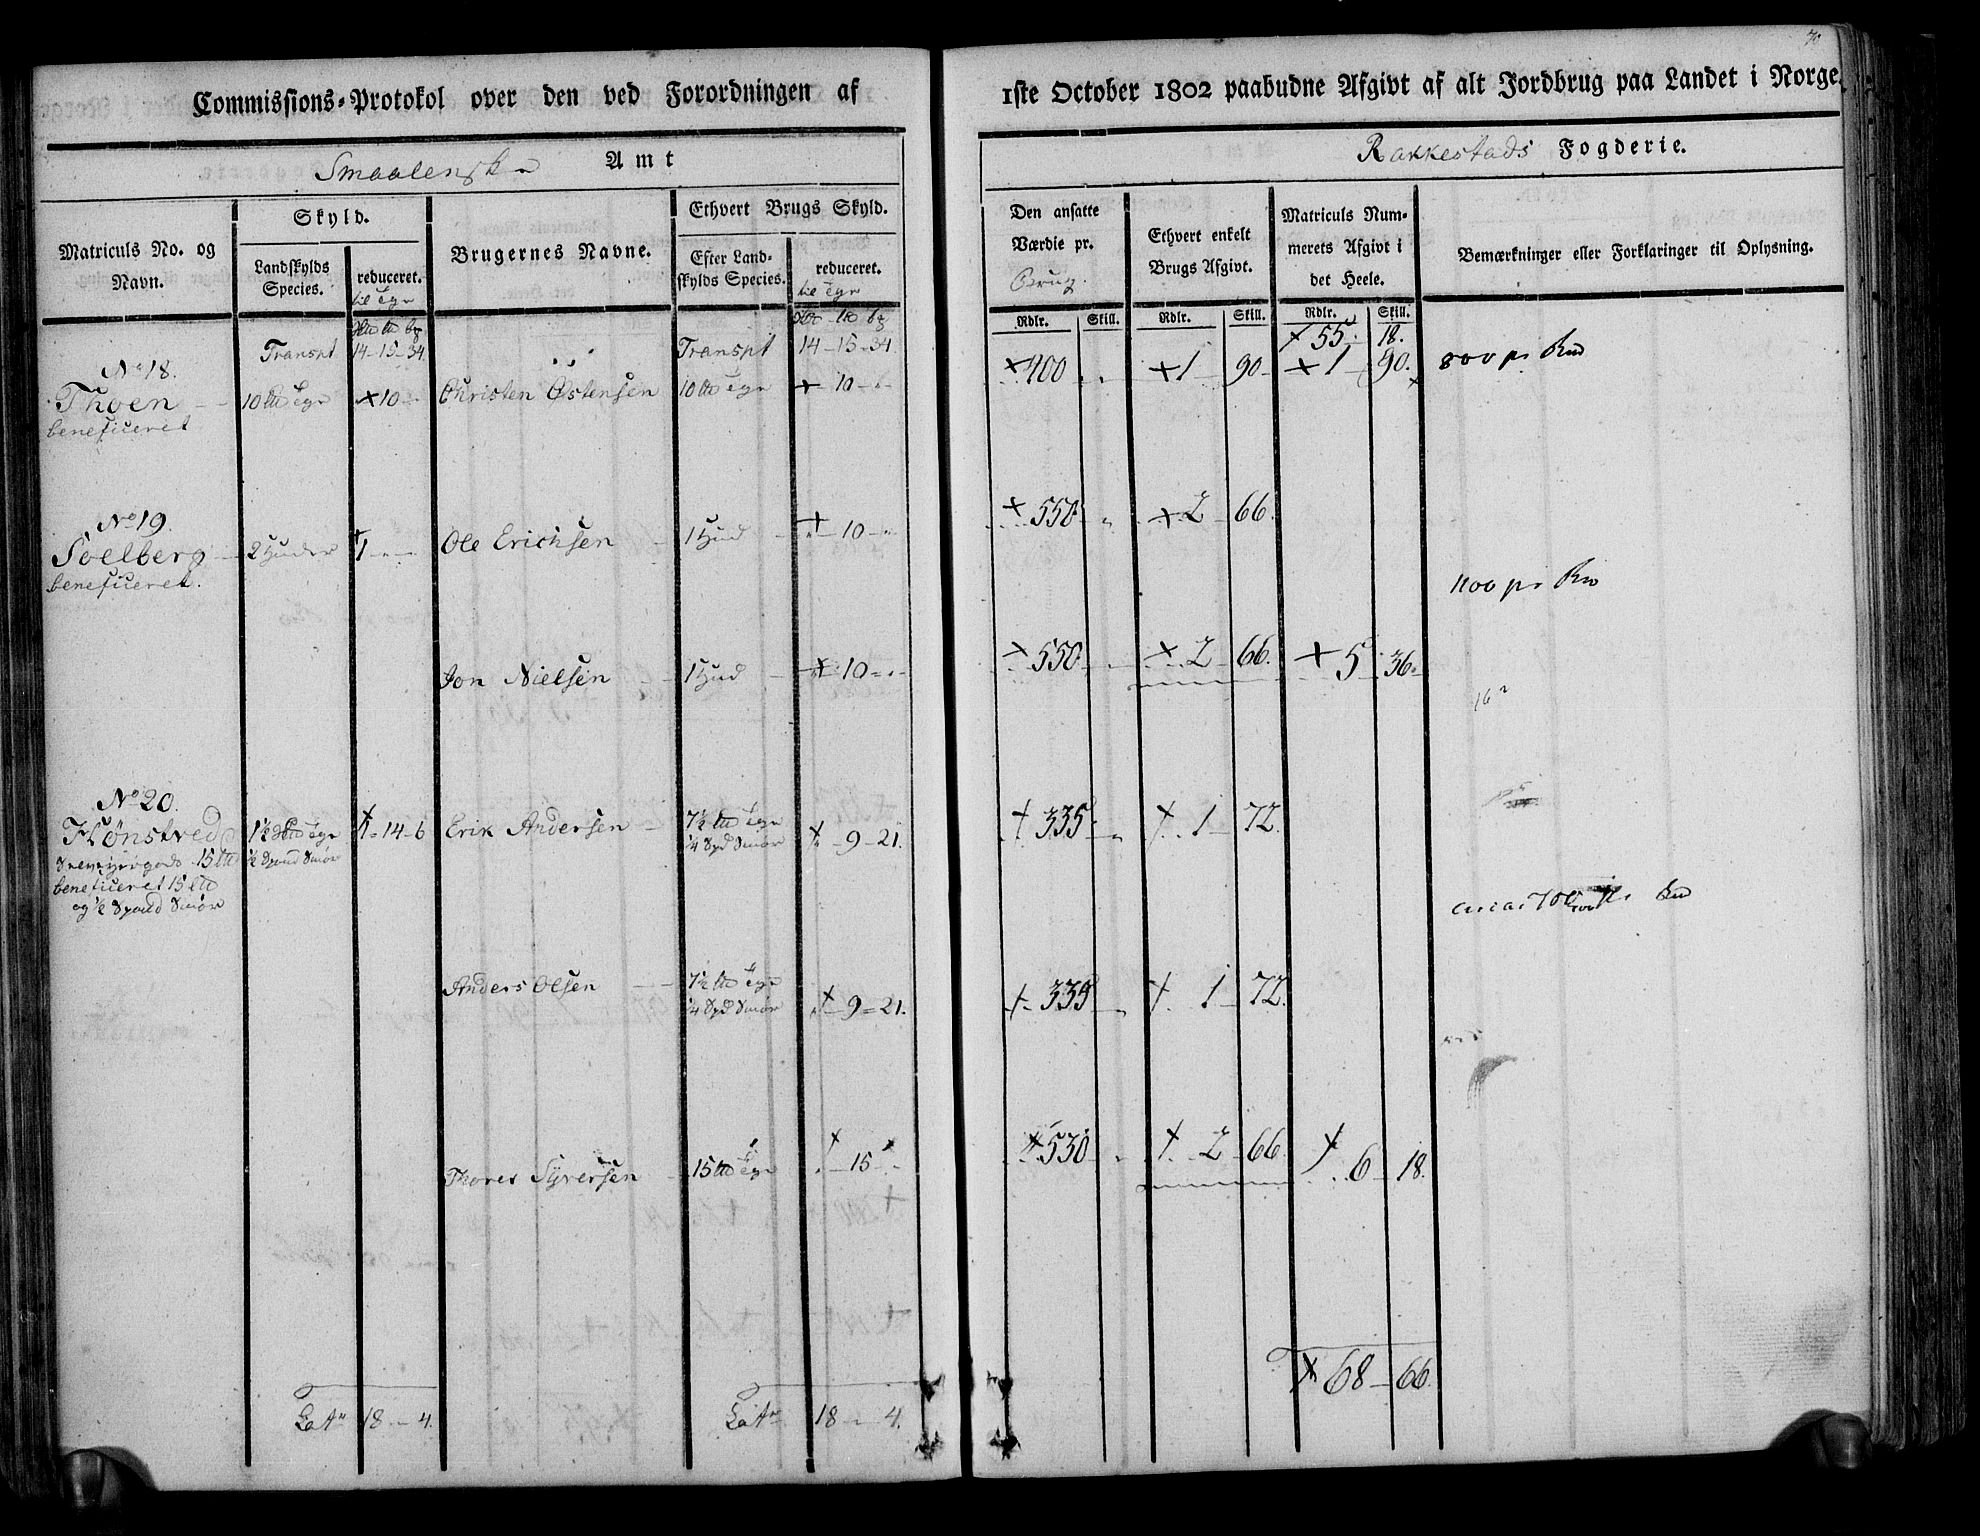 70
Commissions-Protokol over den ved Forordningen af
1ste October 1802 paabudne Afgivt af alt Jordbrug paa Landet i Norge.
Smaalenske Amt
Rakkestads Fogderie.
Matriculs No. og Navn.
Skyld.
Landskylds Species.
reduceret.
til Tgr
Brugernes Navne.
Ethvert Brugs Skyld.
Efter Landskylds Species.
reduceret.
til Tgr
Den ansatte Værdie pr. Brug.
Ethvert enkelt Brugs Afgivt.
Matriculs Nummerets Afgivt i det Heele.
Bemærkninger eller Forklaringer til Oplysning.
Rdlr. Skill. Rdlr. Skill. Rdlr. Skill.
Transpt 14-15-34 Transpt 14-15-34 + 55. 18.
No 18.
Thoen 10 ltb Tgr +10 Christen Østensen 10 ltb Tgr + 10 + 400 +1 90 +1 90. 800 pr Rd
beneficeret
No 19.
Soelberg 2 Huder +1 Ole Erichsen 1 Hud + 10 + 550 +2 66.
beneficeret.
1100 pr Rd
Jon Nielsen 1 Hud + 10 + 550 +2 66. +5 36
No 20.
Flønstved 1½ Tgr +1-14-6 Erik Andersen 7½ ltb Tgr + 9-21. + 335 + 1 72.
15 ltb ½ Spund Smør ¼ Spd Smør
beneficeret 15 ltb
og ½ Spund Smør
700
Anders Olsen 7½ ltb Tgr + 9-21. + 335 + 1 72.
¼ Spd Smør
Thores Syversen 15 ltb Tgr + 15 + 530 + 2 66 + 6 18.
+ 68-66.
Lat 18 - 4. Lat 18 - 4.